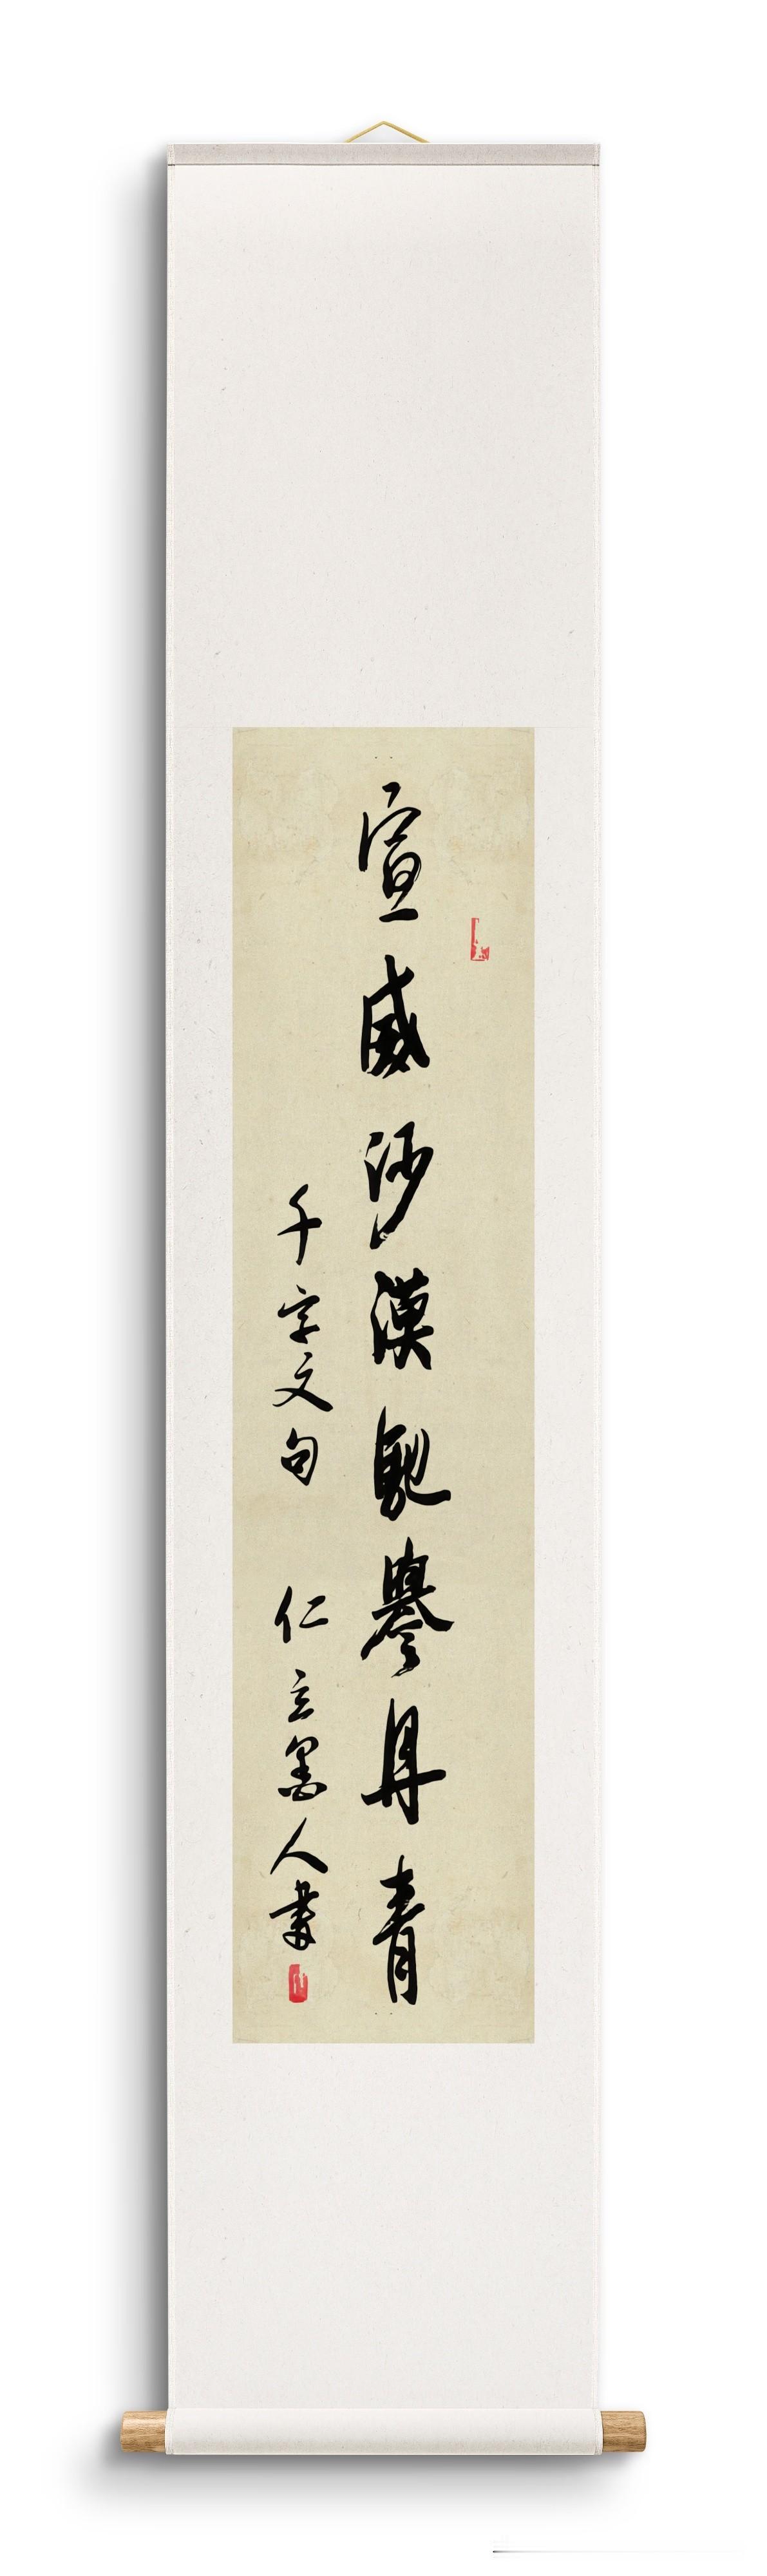 宣威沙漠馳譽丹青
千字文句 仁立墨人書